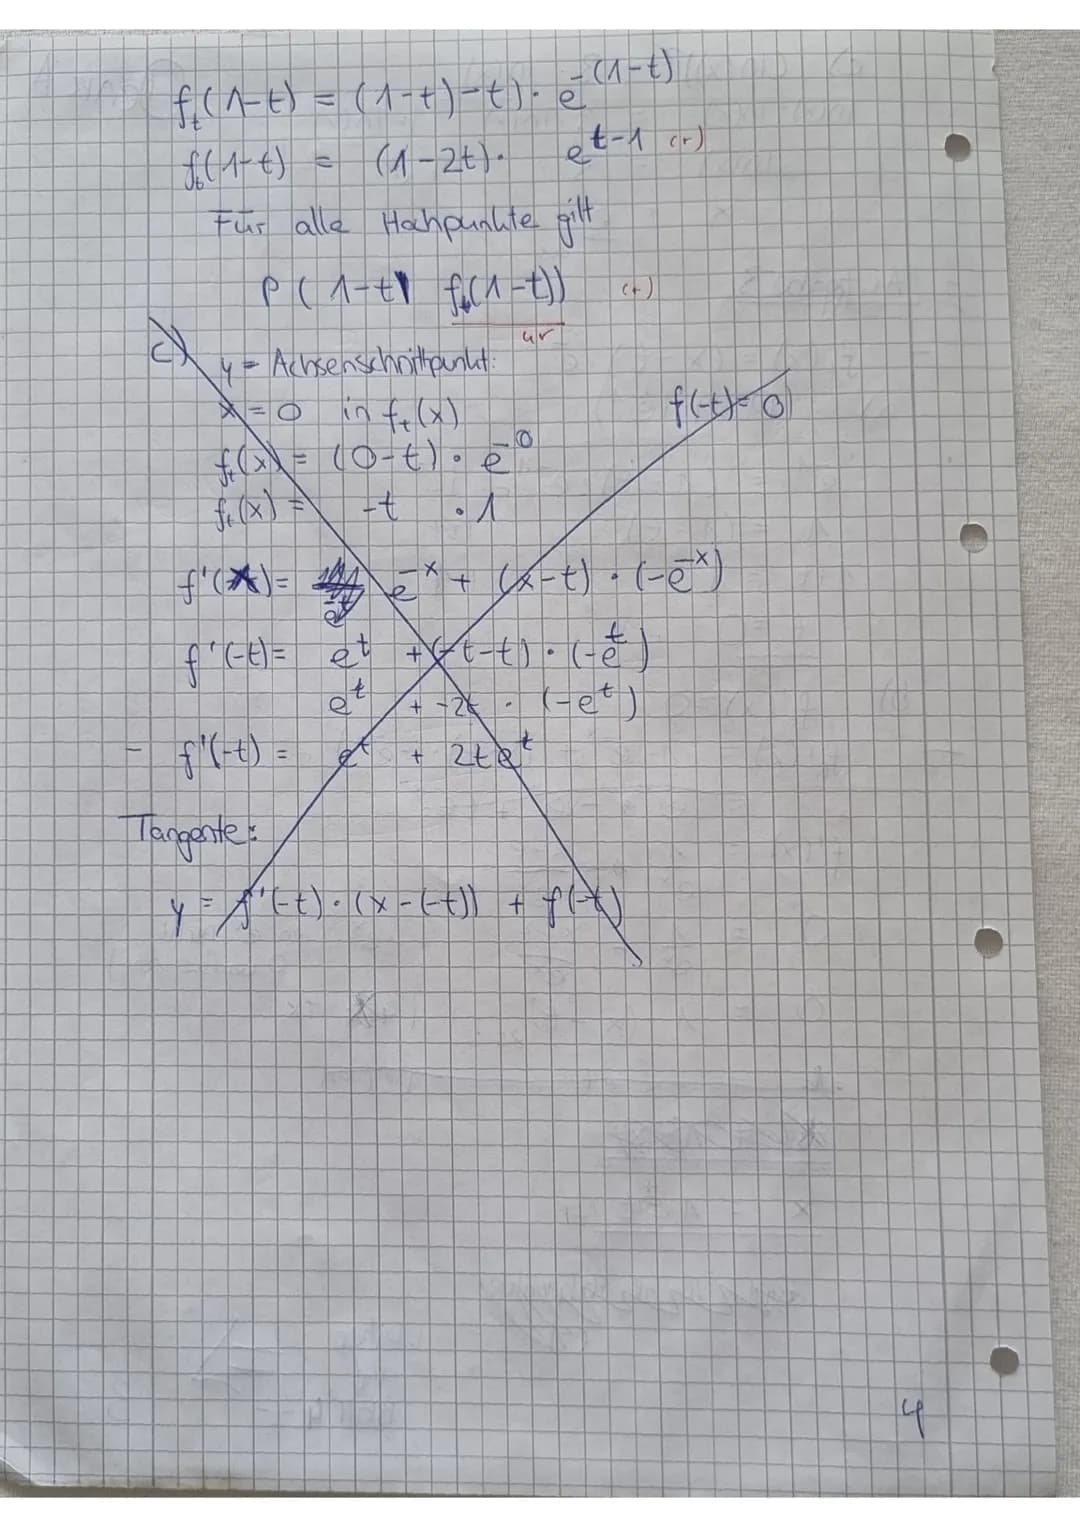 f_t(1-t) = (1-t)-t)· e^-(1-t)
f_t(1-t) = (1-2t)· e^t-1 (r)
Für alle Hochpunkte gilt
P(1-t| f_t(1-t)) (r)
ur
c) y-Achsenschnittpunkt:
x=0 in f_t(x) f(-t)=0
f_t(x) = (0-t)· e^-0
f_t(x) = -t ·1
f'(x)= e^-x + (x-t)·(-e^-x)
f'(-t)= e^t +(-t-t)·(-e^t)
e^t + -2t · (-e^t)
- f'(-t) = e^t + 2te^t
Tangente:
y = f'(-t)·(x-(-t)) + f(-t)
4